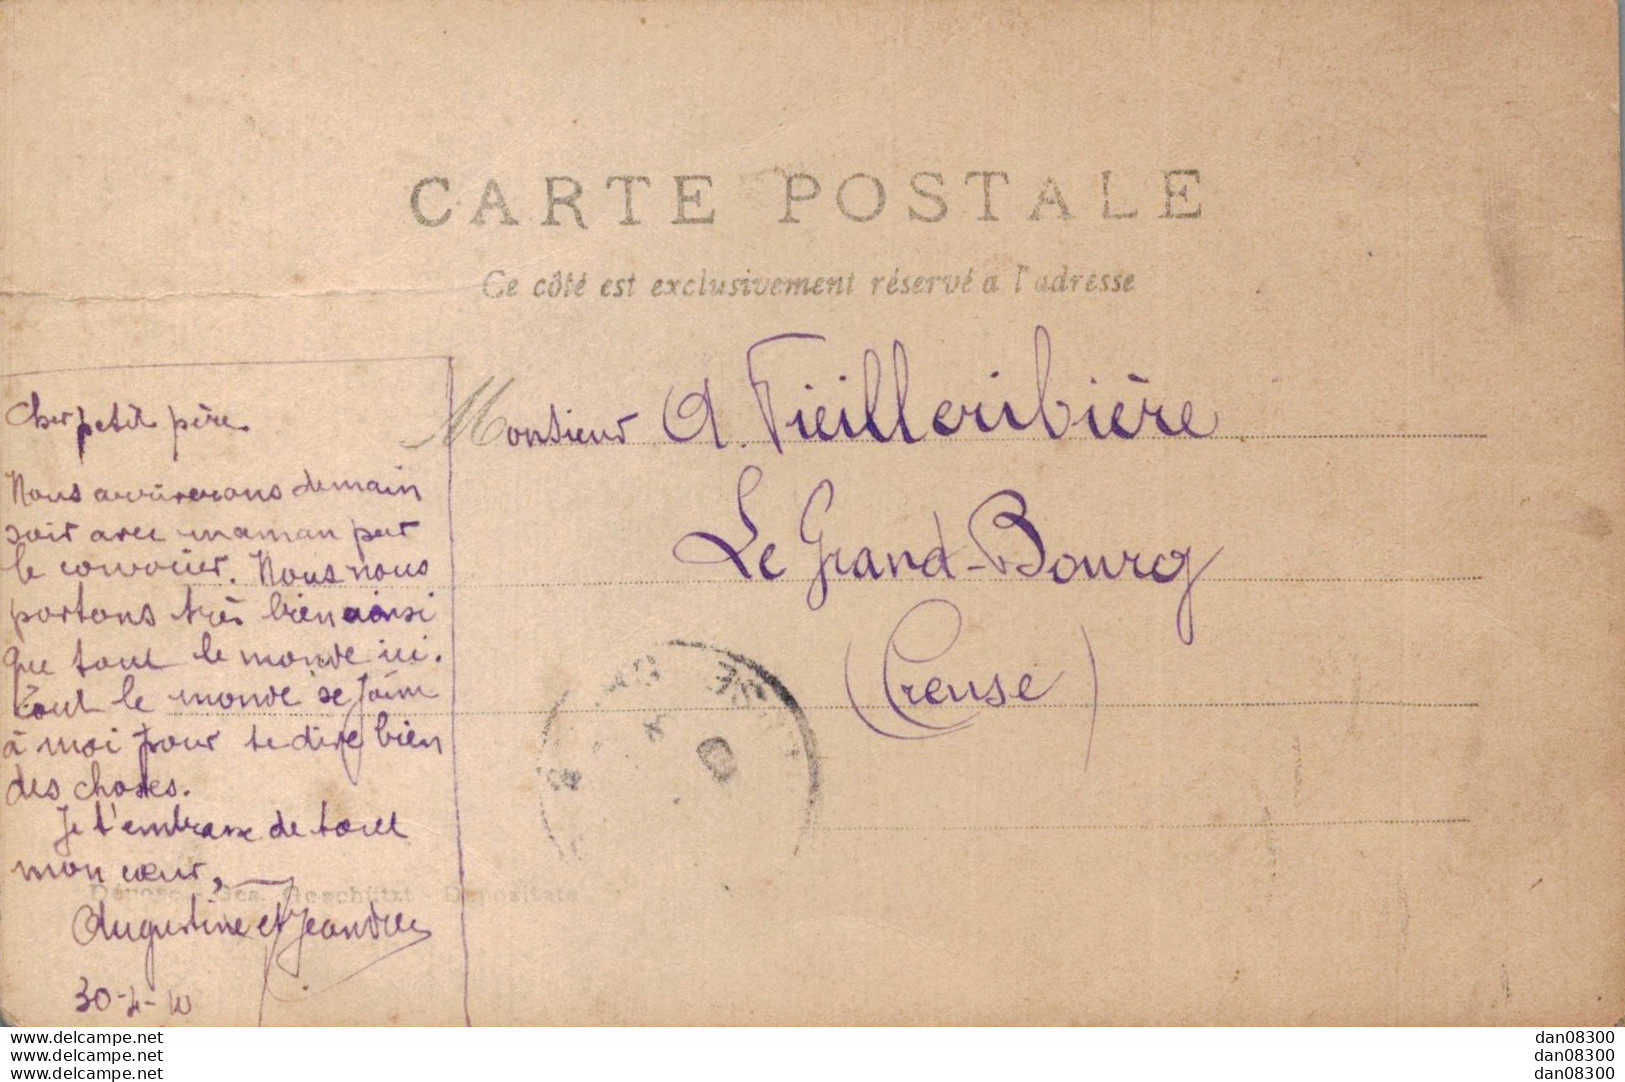 CARTE POSTALE
Ce côté est exclusivement réservé a l'adresse
Monsieur A. Vieilleribière
Le Grand-Bourg
(Creuse)
Cher petit père
Nous arriverons demain
soir avec maman par
le courrier. Nous nous
portons très bien ainsi
que tout le monde ici.
Tout le monde se joint
à moi pour te dire bien
des choses.
Je t'embrasse de tout
mon cœur,
Augustine et
30-4-10
Déposé - Ges. Geschützt - Depositate
www.delcampe.net
www.delcampe.net
www.delcampe.net
dan08300
dan08300
dan08300